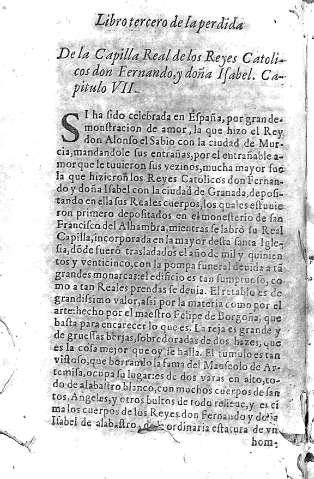 Libro tercero de la perdida
De la Capilla Real de los Reyes Catoli-
cos don Fernando, y doña Isabel. Ca-
pitulo VII.
SI ha sido celebrada en España, por gran de-
monstracion de amor, la que hizo el Rey
don Alonso el Sabio con la ciudad de Mur-
cia, mandandole sus entrañas, por el entrañable a-
mor que le tuuieron sus vezinos, mucha mayor fue
la que hizieron los Reyes Catolicos don Fernan-
do y doña Isabel con la ciudad de Granada, deposi-
tando en ella sus Reales cuerpos, los quales estuuie
ron primero depositados en el monesterio de san
Francisco del Alhambra, mientras se labró su Real
Capilla, incorporada en la mayor desta santa Igle-
sia, dõde fuerõ trasladados el año de mil y quinien
tos y venticinco, con la pompa funeral deuida a tã
grandes monarcas: el edificio es tan sumptuoso, co-
mo a tan Reales prendas se deuia. El retablo es de
grandissimo valor, assi por la materia como por el
arte: hecho por el maestro Felipe de Borgoña, que
basta para encarecer lo que es. La reja es grande y
de gruessas berjas, sobredoradas de dos hazes, que
es la cosa mejor que oy se halla. El tumulo es tan
vistoso, que borrando la fama del Mauseolo de Ar-
temisa, ocupa su lugar: es de dos varas en alto, to-
do de alabastro blanco, con muchos cuerpos de san
tos, Angeles, y otros bultos de todo relieue, y en ci
ma los cuerpos de los Reyes don Fernando y doña
Isabel de alabastro, de ordinaria estatura de vn
hom-